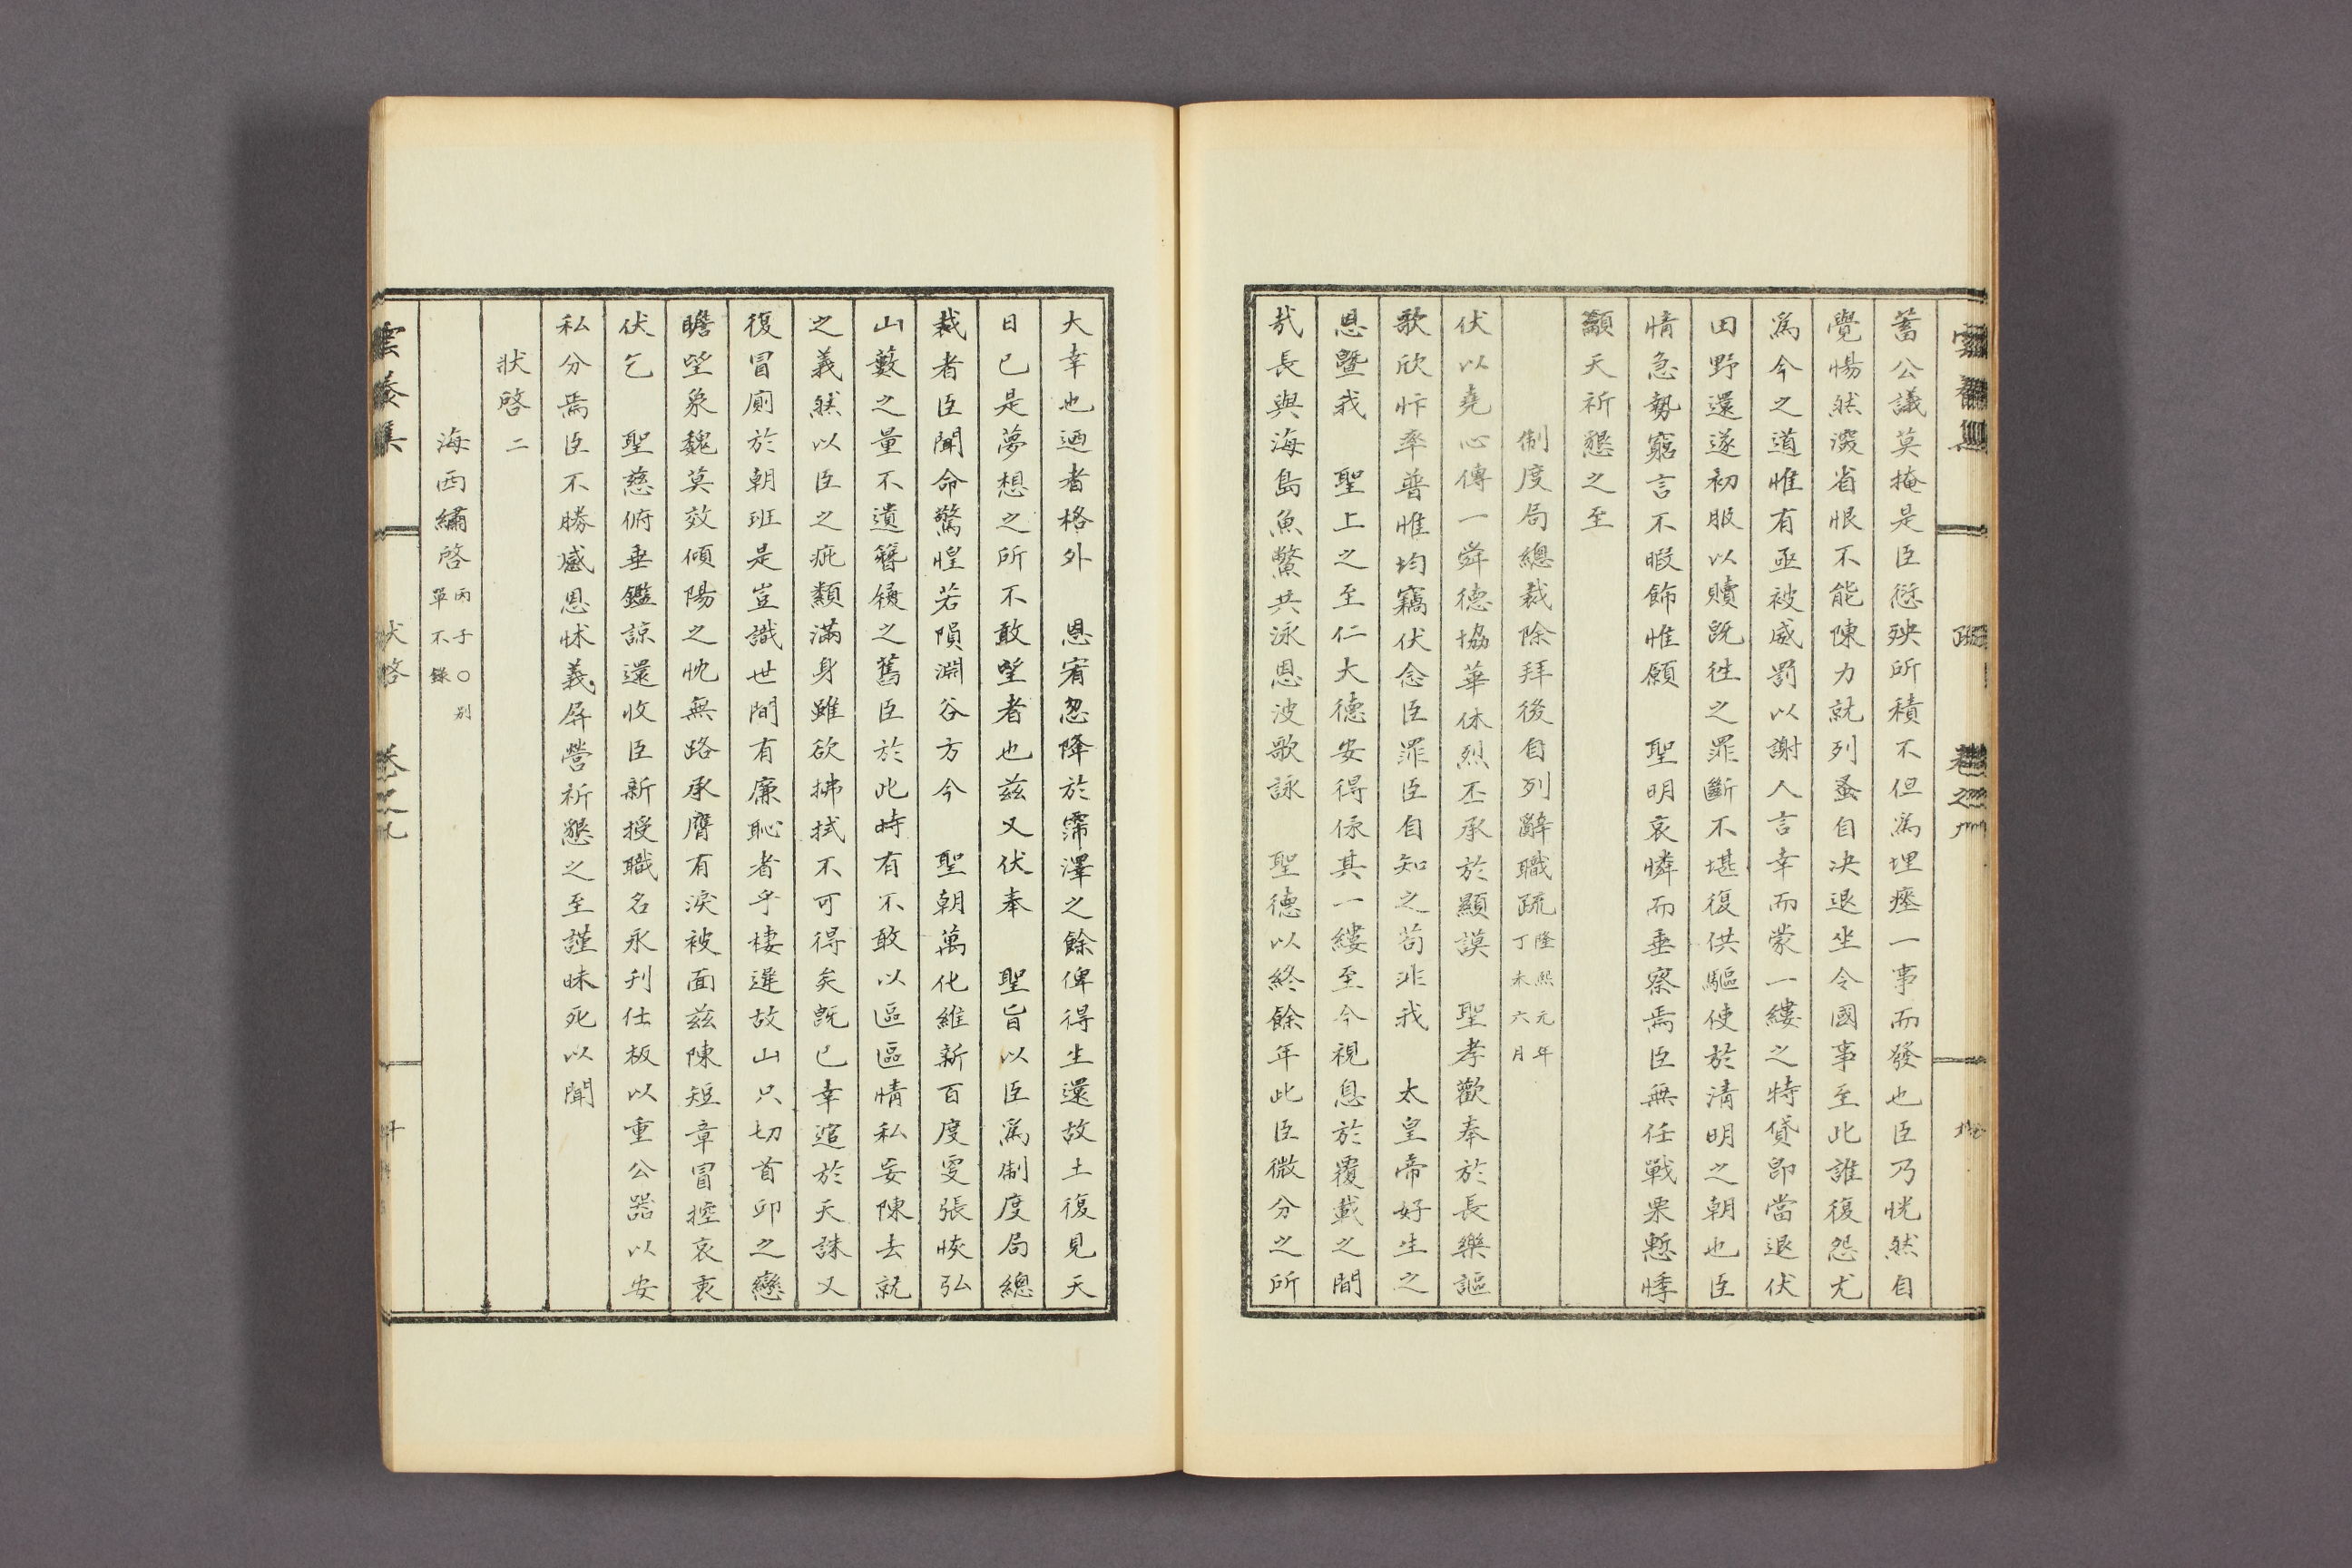 蓄公議莫掩是臣愆殃所積不但爲埋瘞一事而發也臣乃恍然自
覺惕然深省恨不能陳力就列蚤自决退坐令國事至此誰復怨尤
爲今之道惟有亟被威罰以謝人言幸而蒙一縷之特貸卽當退伏
田野還遂初服以贖旣徃之罪斷不堪復供驅使於淸明之朝也臣
情急勢窮言不暇飾惟願 聖明哀憐而垂察焉臣無任戰栗慙悸
籲天祈懇之至
制度局總裁除拜後自列辭職疏 隆熙元年丁未六月
伏以堯心傳一舜德協華休烈丕承於顯謨 聖孝歡奉於長樂謳
歌欣忭率普惟均竊伏念臣罪臣自知之苟非我 太皇帝好生之
恩曁我 聖上之至仁大德安得保其一縷至今視息於覆載之間
哉長與海島魚鱉共泳恩波歌詠 聖德以終餘年此臣微分之所
大幸也迺者格外 恩宥忽降於霈澤之餘俾得生還故土復見天
日已是夢想之所不敢望者也玆又伏奉 聖旨以臣爲制度局總
裁者臣聞命驚惶若隕淵谷方今 聖朝萬化維新百度更張恢弘
山藪之量不遺簪履之舊臣於此時有不敢以區區情私妄陳去就
之義然以臣之疵纇滿身雖欲拂拭不可得矣旣已幸逭於天誅又
復冒廁於朝班是豈識世間有廉恥者乎棲遲故山只切首邱之戀
瞻望象魏莫效傾陽之忱無路承膺有淚被面玆陳短章冒控哀衷
伏乞 聖慈俯垂鑑諒還收臣新授職名永刋仕板以重公器以安
私分焉臣不勝感恩怵義屛營祈懇之至謹昧死以聞
狀啓二
海西繡啓 丙子○別單不錄
雲養集 狀啓 卷之九 十